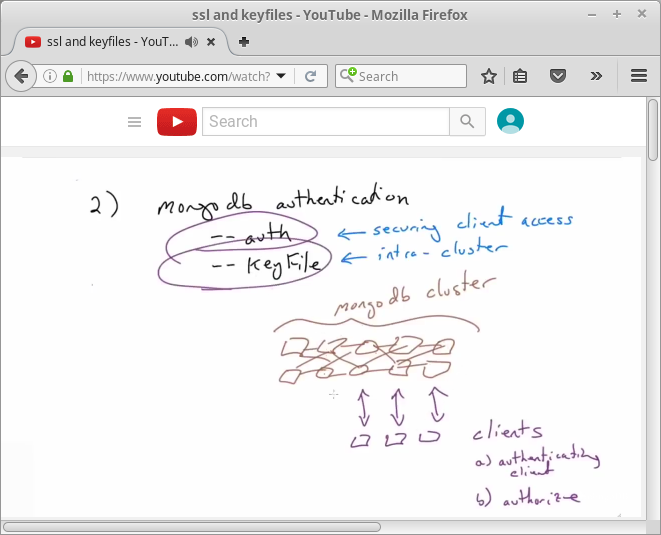 ssl and keyfiles - YouTube - Mozilla Firefox
ssl and keyfiles - YouT...
https://www.youtube.com/watch?
Search
Search
2) mongodb authentication
-- auth ← securing client access
-- keyFile ← intra-cluster
mongodb cluster
clients
a) authenticating
client
b) authorize